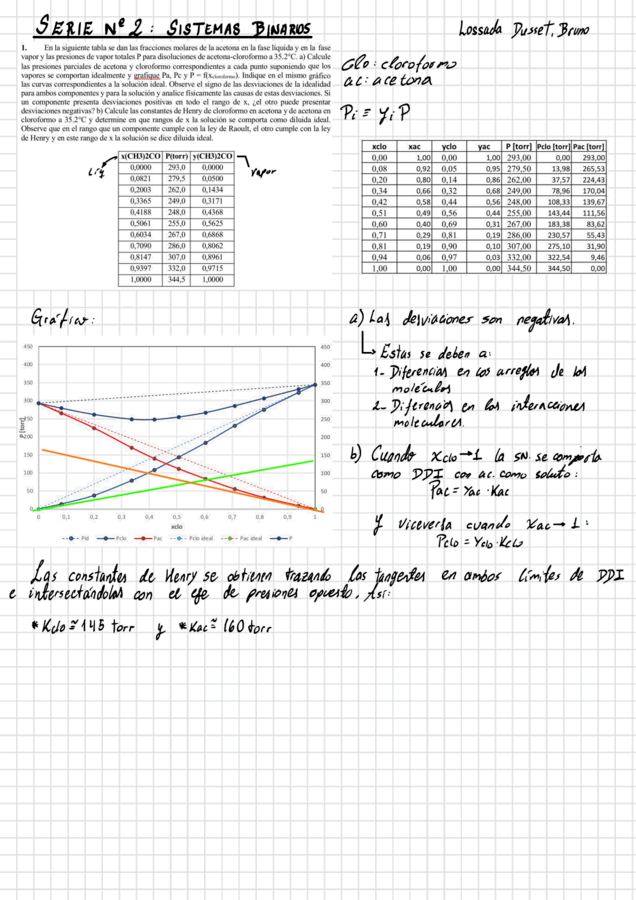 SERIE Nº2: SISTEMAS BINARIOS
Lossada Dusset, Bruno
1. En la siguiente tabla se dan las fracciones molares de la acetona en la fase líquida y en la fase
vapor y las presiones de vapor totales P para disoluciones de acetona-cloroformo a 35.2°C. a) Calcule
las presiones parciales de acetona y cloroformo correspondientes a cada punto suponiendo que los
vapores se comportan idealmente y grafique Pa, Pc y P = f(xcloroformo). Indique en el mismo gráfico
las curvas correspondientes a la solución ideal. Observe el signo de las desviaciones de la idealidad
para ambos componentes y para la solución y analice físicamente las causas de estas desviaciones. Si
un componente presenta desviaciones positivas en todo el rango de x, ¿el otro puede presentar
desviaciones negativas? b) Calcule las constantes de Henry de cloroformo en acetona y de acetona en
cloroformo a 35.2°C y determine en que rangos de x la solución se comporta como diluida ideal.
Observe que en el rango que un componente cumple con la ley de Raoult, el otro cumple con la ley
de Henry y en este rango de x la solución se dice diluida ideal.
Clo: cloroformo
ac: acetona
Pi = yi P
Liq
x(CH3)2CO P(torr) y(CH3)2CO
Vapor
0,0000 293,0 0,0000
0,0821 279,5 0,0500
0,2003 262,0 0,1434
0,3365 249,0 0,3171
0,4188 248,0 0,4368
0,5061 255,0 0,5625
0,6034 267,0 0,6868
0,7090 286,0 0,8062
0,8147 307,0 0,8961
0,9397 332,0 0,9715
1,0000 344,5 1,0000
xclo xac yclo yac P [torr] Pclo [torr] Pac [torr]
0,00 1,00 0,00 1,00 293,00 0,00 293,00
0,08 0,92 0,05 0,95 279,50 13,98 265,53
0,20 0,80 0,14 0,86 262,00 37,57 224,43
0,34 0,66 0,32 0,68 249,00 78,96 170,04
0,42 0,58 0,44 0,56 248,00 108,33 139,67
0,51 0,49 0,56 0,44 255,00 143,44 111,56
0,60 0,40 0,69 0,31 267,00 183,38 83,62
0,71 0,29 0,81 0,19 286,00 230,57 55,43
0,81 0,19 0,90 0,10 307,00 275,10 31,90
0,94 0,06 0,97 0,03 332,00 322,54 9,46
1,00 0,00 1,00 0,00 344,50 344,50 0,00
Gráfico:
450 450
400 400
350 350
300 300
250 250
P [torr]
200 200
150 150
100 100
50 50
0 0
0 0,1 0,2 0,3 0,4 0,5 0,6 0,7 0,8 0,9 1
xclo
Pid Pclo Pac Pclo ideal Pac ideal P
a) Las desviaciones son negativas.
Estas se deben a:
1- Diferencias en los arreglos de las
moléculas
2- Diferencias en las interacciones
moleculares.
b) Cuando xclo→1 la sn. se comporta
como DDI con ac. como soluto:
Pac = Yac · Kac
Y viceversa cuando xac→1:
Pclo = Yclo · Kclo
Las constantes de Henry se obtienen trazando las tangentes en ambos límites de DDI
e intersectándolas con el eje de presiones opuesto. Así:
* Kclo ≅ 145 torr y * Kac ≅ 160 torr